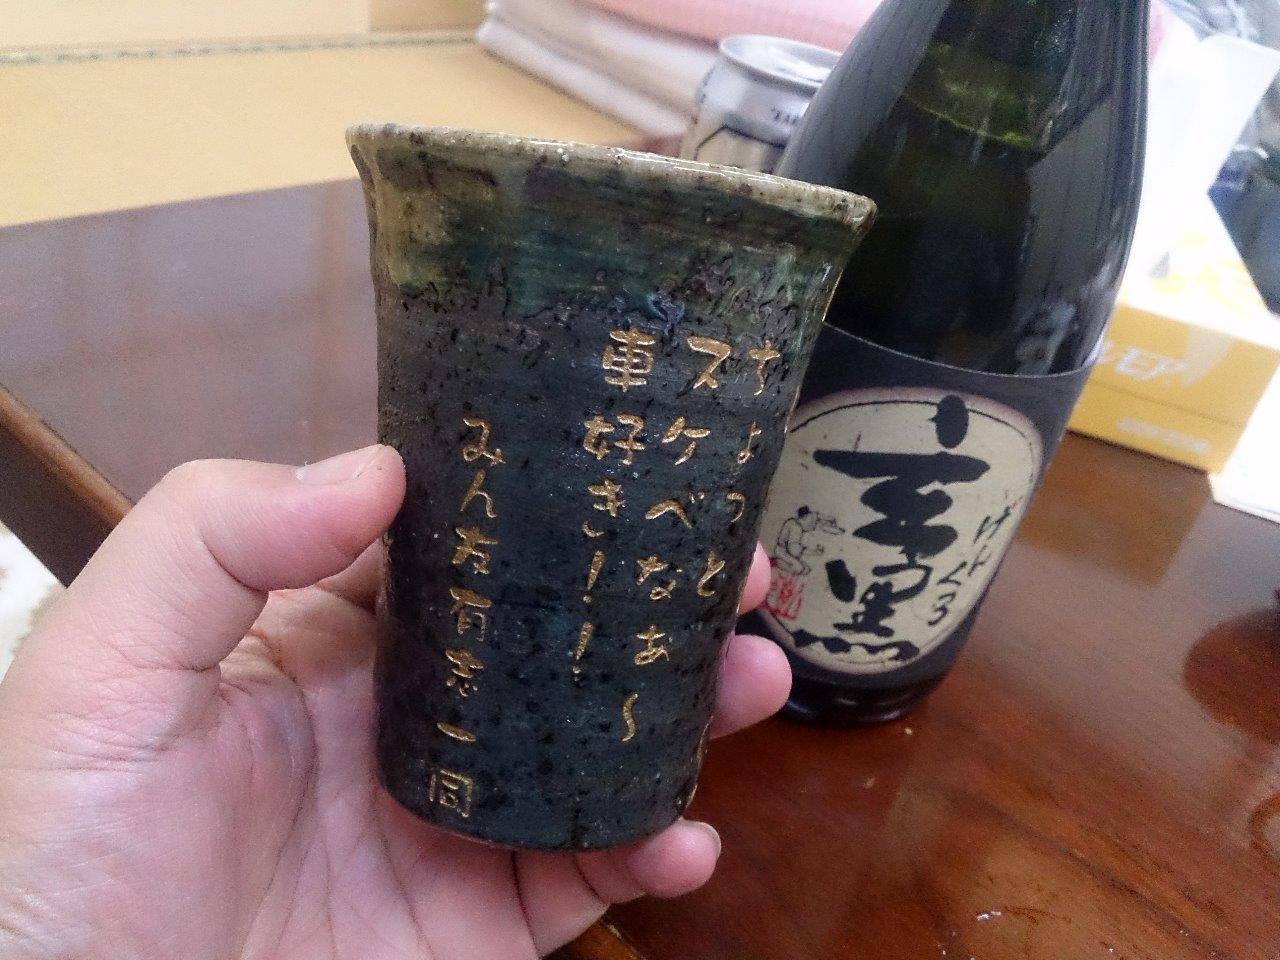 ちょっと
スケベなぁ〜
車好き!!
みんな有志一同
玄黒
げんくろ